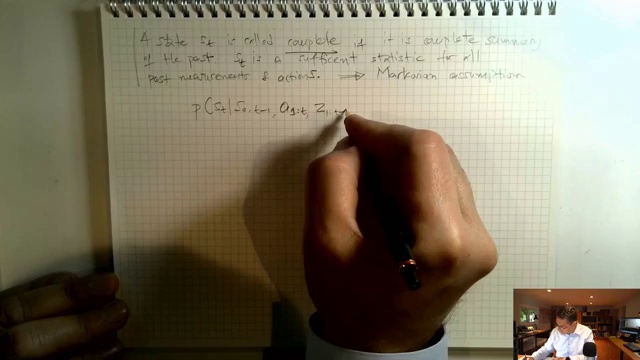 A state st is called complete if it is complete summary
of the past st is a sufficent statistic for all
past measurements & actions. ⟹ Markovian assumption
p(st|s0:t-1, a1:t, z1:t-1